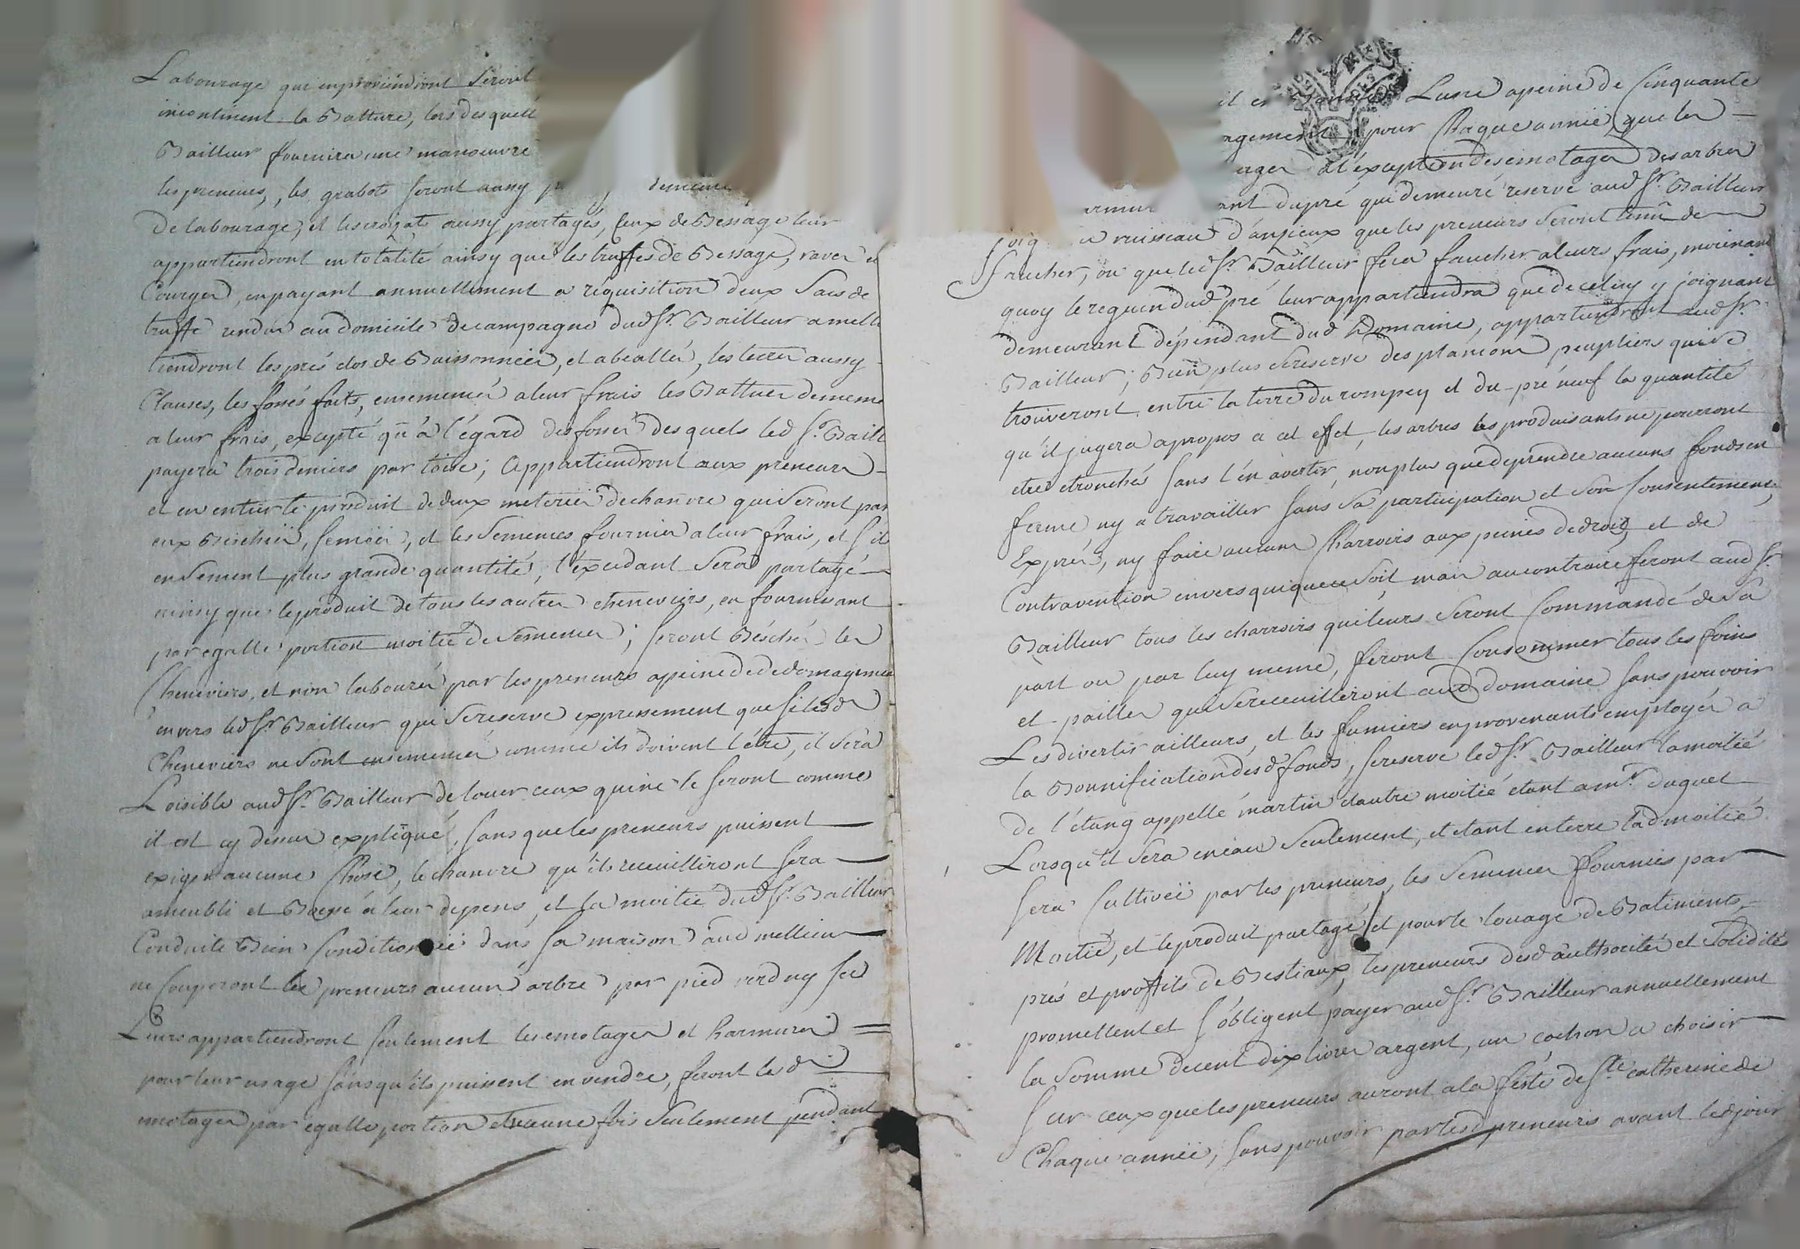 Labourage qui en proviendront seront
incontinent la Batture, lors desquell
Bailleur fournira une manoeuvre
les preneurs, les grabots seront aussy
De labourage, et les croizats aussy partagés, ceux de Bessage leur
appartiendront en totalité ainsy que les truffes de Bessage, raves et
Courges, en payant annuellement a réquisition deux Sacs de
truffe rendus au domicile de campagne dud Sr. Bailleur a mell
tiendront les prés clos de Buissonnées, et abeallés, les terres aussy
Clauses, les fossés faits, ensemencés a leur frais les Battues de meme
a leur frais, excepté qu'à l'égard des fossés desquels led Sr. Baill
payera trois deniers par toise; Appartiendront aux preneurs
et en entier le produit de deux meterées de chanvre qui seront par
eux Beschées, semées, et les Semences fournies a leur frais, et s'il
en Sement plus grande quantité, l'éxcedant Sera partagé
ainsy que le produit de tous les autres cheneviers, en fournissant
par egalle portion moitié de Semences; Seront Béschés les
Cheneviers, et non labourés par les preneurs a peine de dedomagement
envers led Sr. Bailleur qui se reserve expressement que si lesd
Cheneviers ne Sont ensemencés comme ils doivent l'être, il Sera
Loisible aud Sr. Bailleur de louer ceux qui ne le seront comme
il est cy dessus expliqué, sans que les preneurs puissent
exiger aucune Chose, le chanvre qu'ils receuilliront Sera
ameubli et à leur depens, et la moitié dud Sr. Bailleur
Conduite Bien Conditionnée dans sa maison aud mellieu
ne Couperont les preneurs aucuns arbres par pied verd ny sec
Leurs appartiendront Seulement les emotages et harmures
pour leur usage sans qu'ils puissent en vendre, feront lesd
emotages par egalle portion et une fois Seulement pendant
Luore a peine de Cinquante
pour Chaque année, que les
à l'éxception des emotages des arbres
dupré qui demeure reservé aud Sr. Bailleur
ruisseau d'anjeux que les preneurs Seront tenus de
faucher, ou que led Sr. Bailleur fera faucher a leurs frais, moienant
quoy le regain dud pré leur appartiendra que de celuy y joignant
demeurant dépendant dud Domaine, appartiendront aud Sr.
Bailleur; Bien plus se reserve des plançons peupliers qui se
trouveront entre la terre du rompey et du pré neuf la quantité
qu'il jugera apropos a cet effet, les arbres les produisants ne pourront
etre etronchés sans l'en avertir, nonplus que de prendre aucuns fonds en
ferme, ny a travailler sans sa participation et son Consentement
Exprés, ny faire aucuns Charrois aux peines de droit, et de
Contravention envers qui que ce soit, mais au contraire feront aud Sr.
Bailleur tous les charrois qui leurs Seront Commandé de Sa
part ou par luy meme, feront Consommer tous les foins
et pailles qui se receuilleront aud Domaine sans pouvoir
Les divertir ailleurs, et les fumiers en provenants employés a
la Bonnification desd fonds, se reserve led Sr. Bailleur la moitié
de l'étang appellé martin l'autre moitié etant a mr. duguet
Lorsqu'il Sera en eau Seulement, et etant en terre lad moitié
Sera Cultivée par les preneurs, les Semences fournies par
Moitié, et le produit partagé, et pour le louage de Batiments,
prés et proffits de Bestiaux, les preneurs desd authorités et Solidité
promettent et s'obligent payer aud Sr. Bailleur annuellement
la Somme de cent dix livres argent, un cochon a choisir
Sur ceux que les preneurs auront a la fête de Ste. catherine de
Chaque année, Sans pouvoir par lesd preneurs avant led jour